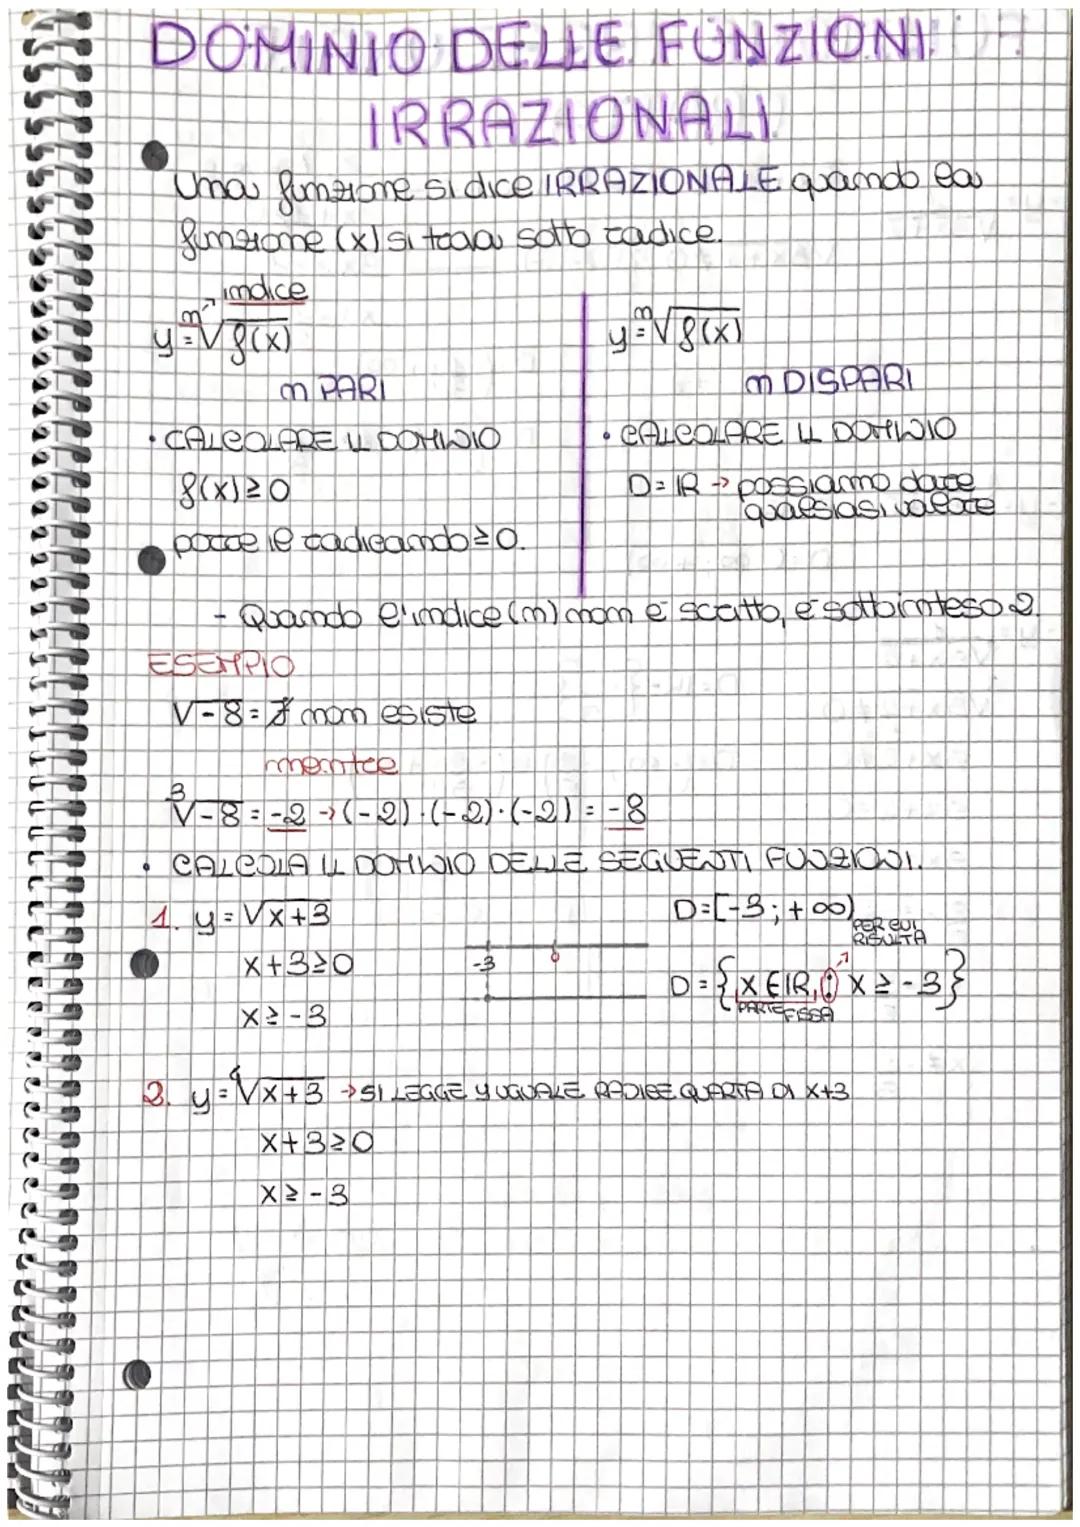 DOMINIO DELLE FUNZIONI
IRRAZIONALI
Una funzione si dice IRRAZIONALE quando la
funzione (x) si trova sotto radice.
indice
y = ⁿ√f(x)
n PARI
• CALCOLARE IL DOMINIO
f(x) ≥ 0
porre il radicando ≥ 0.
y = ⁿ√f(x)
n DISPARI
• CALCOLARE IL DOMINIO
D = IR → possiamo dare
qualsiasi valore
- Quando l'indice (n) non è scritto, è sottointeso 2.
ESEMPIO
√-8 = ∄ non esiste
mentre
³√-8 = -2 → (-2)·(-2)·(-2) = -8
• CALCOLA IL DOMINIO DELLE SEGUENTI FUNZIONI.
1. y = √x+3
x+3 ≥ 0
x ≥ -3
-3 0
D = [-3; +∞)
PER CUI
RISULTA
D = {x ∈ IR, : x ≥ -3}
PARTE FISSA
2. y = ⁴√x+3 → SI LEGGE Y UGUALE RADICE QUARTA DI X+3
x+3 ≥ 0
x ≥ -3